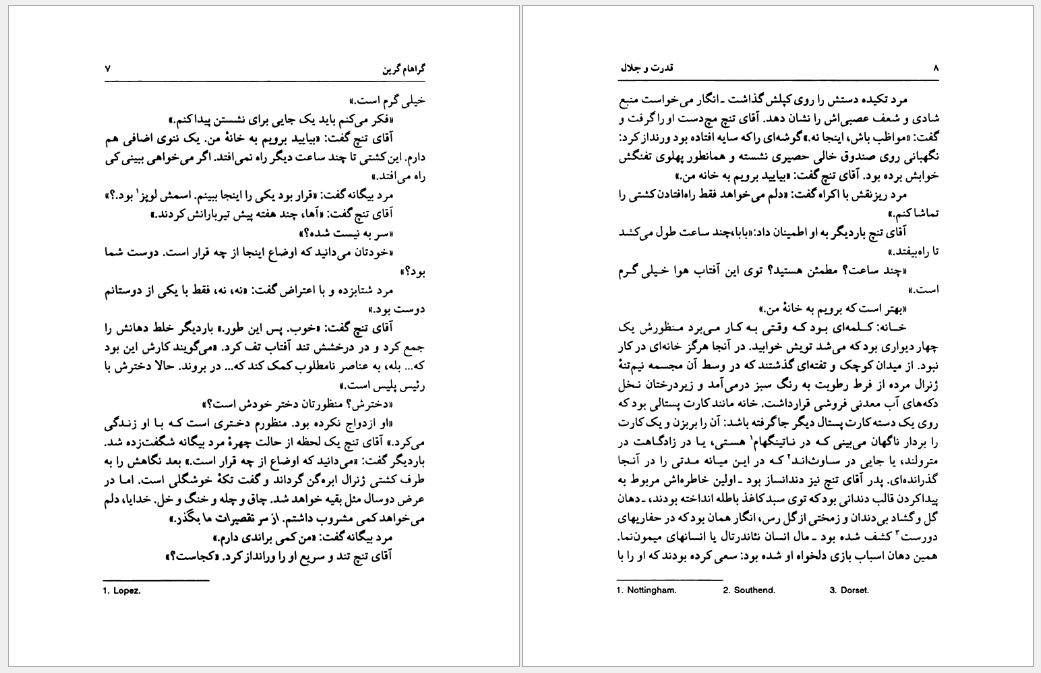 گراهام گرین ۷
خیلی گرم است.»
«فکر می‌کنم باید یک جایی برای نشستن پیدا کنم.»
آقای تنچ گفت: «بیایید برویم به خانهٔ من. یک ننوی اضافی هم
دارم. این کشتی تا چند ساعت دیگر راه نمی‌افتد. اگر می‌خواهی ببینی کی
راه می‌افتد.»
مرد بیگانه گفت: «قرار بود یکی را اینجا ببینم. اسمش لوپز۱ بود.؟»
آقای تنچ گفت: «آها، چند هفته پیش تیربارانش کردند.»
«سر به نیست شده؟»
«خودتان می‌دانید که اوضاع اینجا از چه قرار است. دوست شما
بود؟»
مرد شتابزده و با اعتراض گفت: «نه، نه، فقط با یکی از دوستانم
دوست بود.»
آقای تنچ گفت: «خوب. پس این طور.» باردیگر خلط دهانش را
جمع کرد و در درخشش تند آفتاب تف کرد. «می‌گویند کارش این بود
که... بله، به عناصر نامطلوب کمک کند که... در بروند. حالا دخترش با
رئیس پلیس است.»
«دخترش؟ منظورتان دختر خودش است؟»
«او ازدواج نکرده بود. منظورم دختری است که با او زندگی
می‌کرد.» آقای تنچ یک لحظه از حالت چهرهٔ مرد بیگانه شگفت‌زده شد.
باردیگر گفت: «می‌دانید که اوضاع از چه قرار است.» بعد نگاهش را به
طرف کشتی ژنرال ابره‌گن گرداند و گفت تکهٔ خوشگلی است. اما در
عرض دوسال مثل بقیه خواهد شد. چاق و چله و خنگ و خل. خدایا، دلم
می‌خواهد کمی مشروب داشتم. از سر تقصیرات ما بگذر.»
مرد بیگانه گفت: «من کمی براندی دارم.»
آقای تنچ تند و سریع او را ورانداز کرد. «کجاست؟»
1. Lopez.
۸ قدرت و جلال
مرد تکیده دستش را روی کپلش گذاشت ـ انگار می‌خواست منبع
شادی و شعف عصبی‌اش را نشان دهد. آقای تنچ مچ‌دست او را گرفت و
گفت: «مواظب باش، اینجا نه.» گوشه‌ای را که سایه افتاده بود ورنداز کرد:
نگهبانی روی صندوق خالی حصیری نشسته و همانطور پهلوی تفنگش
خوابش برده بود. آقای تنچ گفت: «بیایید برویم به خانه من.»
مرد ریزنقش با اکراه گفت: «دلم می‌خواهد فقط راه‌افتادن کشتی را
تماشا کنم.»
آقای تنچ باردیگر به او اطمینان داد:«بابا،چند ساعت طول می‌کشد
تا راه‌بیفتد.»
«چند ساعت؟ مطمئن هستید؟ توی این آفتاب هوا خیلی گرم
است.»
«بهتر است که برویم به خانهٔ من.»
خانه: کلمه‌ای بود که وقتی به کار می‌برد منظورش یک
چهار دیواری بود که می‌شد تویش خوابید. در آنجا هرگز خانه‌ای در کار
نبود. از میدان کوچک و تفته‌ای گذشتند که در وسط آن مجسمه نیم‌تنهٔ
ژنرال مرده از فرط رطوبت به رنگ سبز درمی‌آمد و زیردرختان نخل
دکه‌های آب معدنی فروشی قرارداشت. خانه مانند کارت پستالی بود که
روی یک دسته کارت پستال دیگر جا گرفته باشد: آن را بربزن و یک کارت
را بردار ناگهان می‌بینی که در ناتینگهام۱ هستی، یا در زادگاهت در
مترولند، یا جایی در ساوث‌اند۲ که در این میانه مدتی را در آنجا
گذرانده‌ای. پدر آقای تنچ نیز دندانساز بود ـ اولین خاطره‌اش مربوط به
پیداکردن قالب دندانی بود که توی سبد کاغذ باطله انداخته بودند، ـ دهان
گل و گشاد بی‌دندان و زمختی از گل رس، انگار همان بود که در حفاریهای
دورست۳ کشف شده بود ـ مال انسان نئاندرتال یا انسانهای میمون‌نما.
همین دهان اسباب بازی دلخواه او شده بود: سعی کرده بودند که او را با
1. Nottingham. 2. Southend. 3. Dorset.